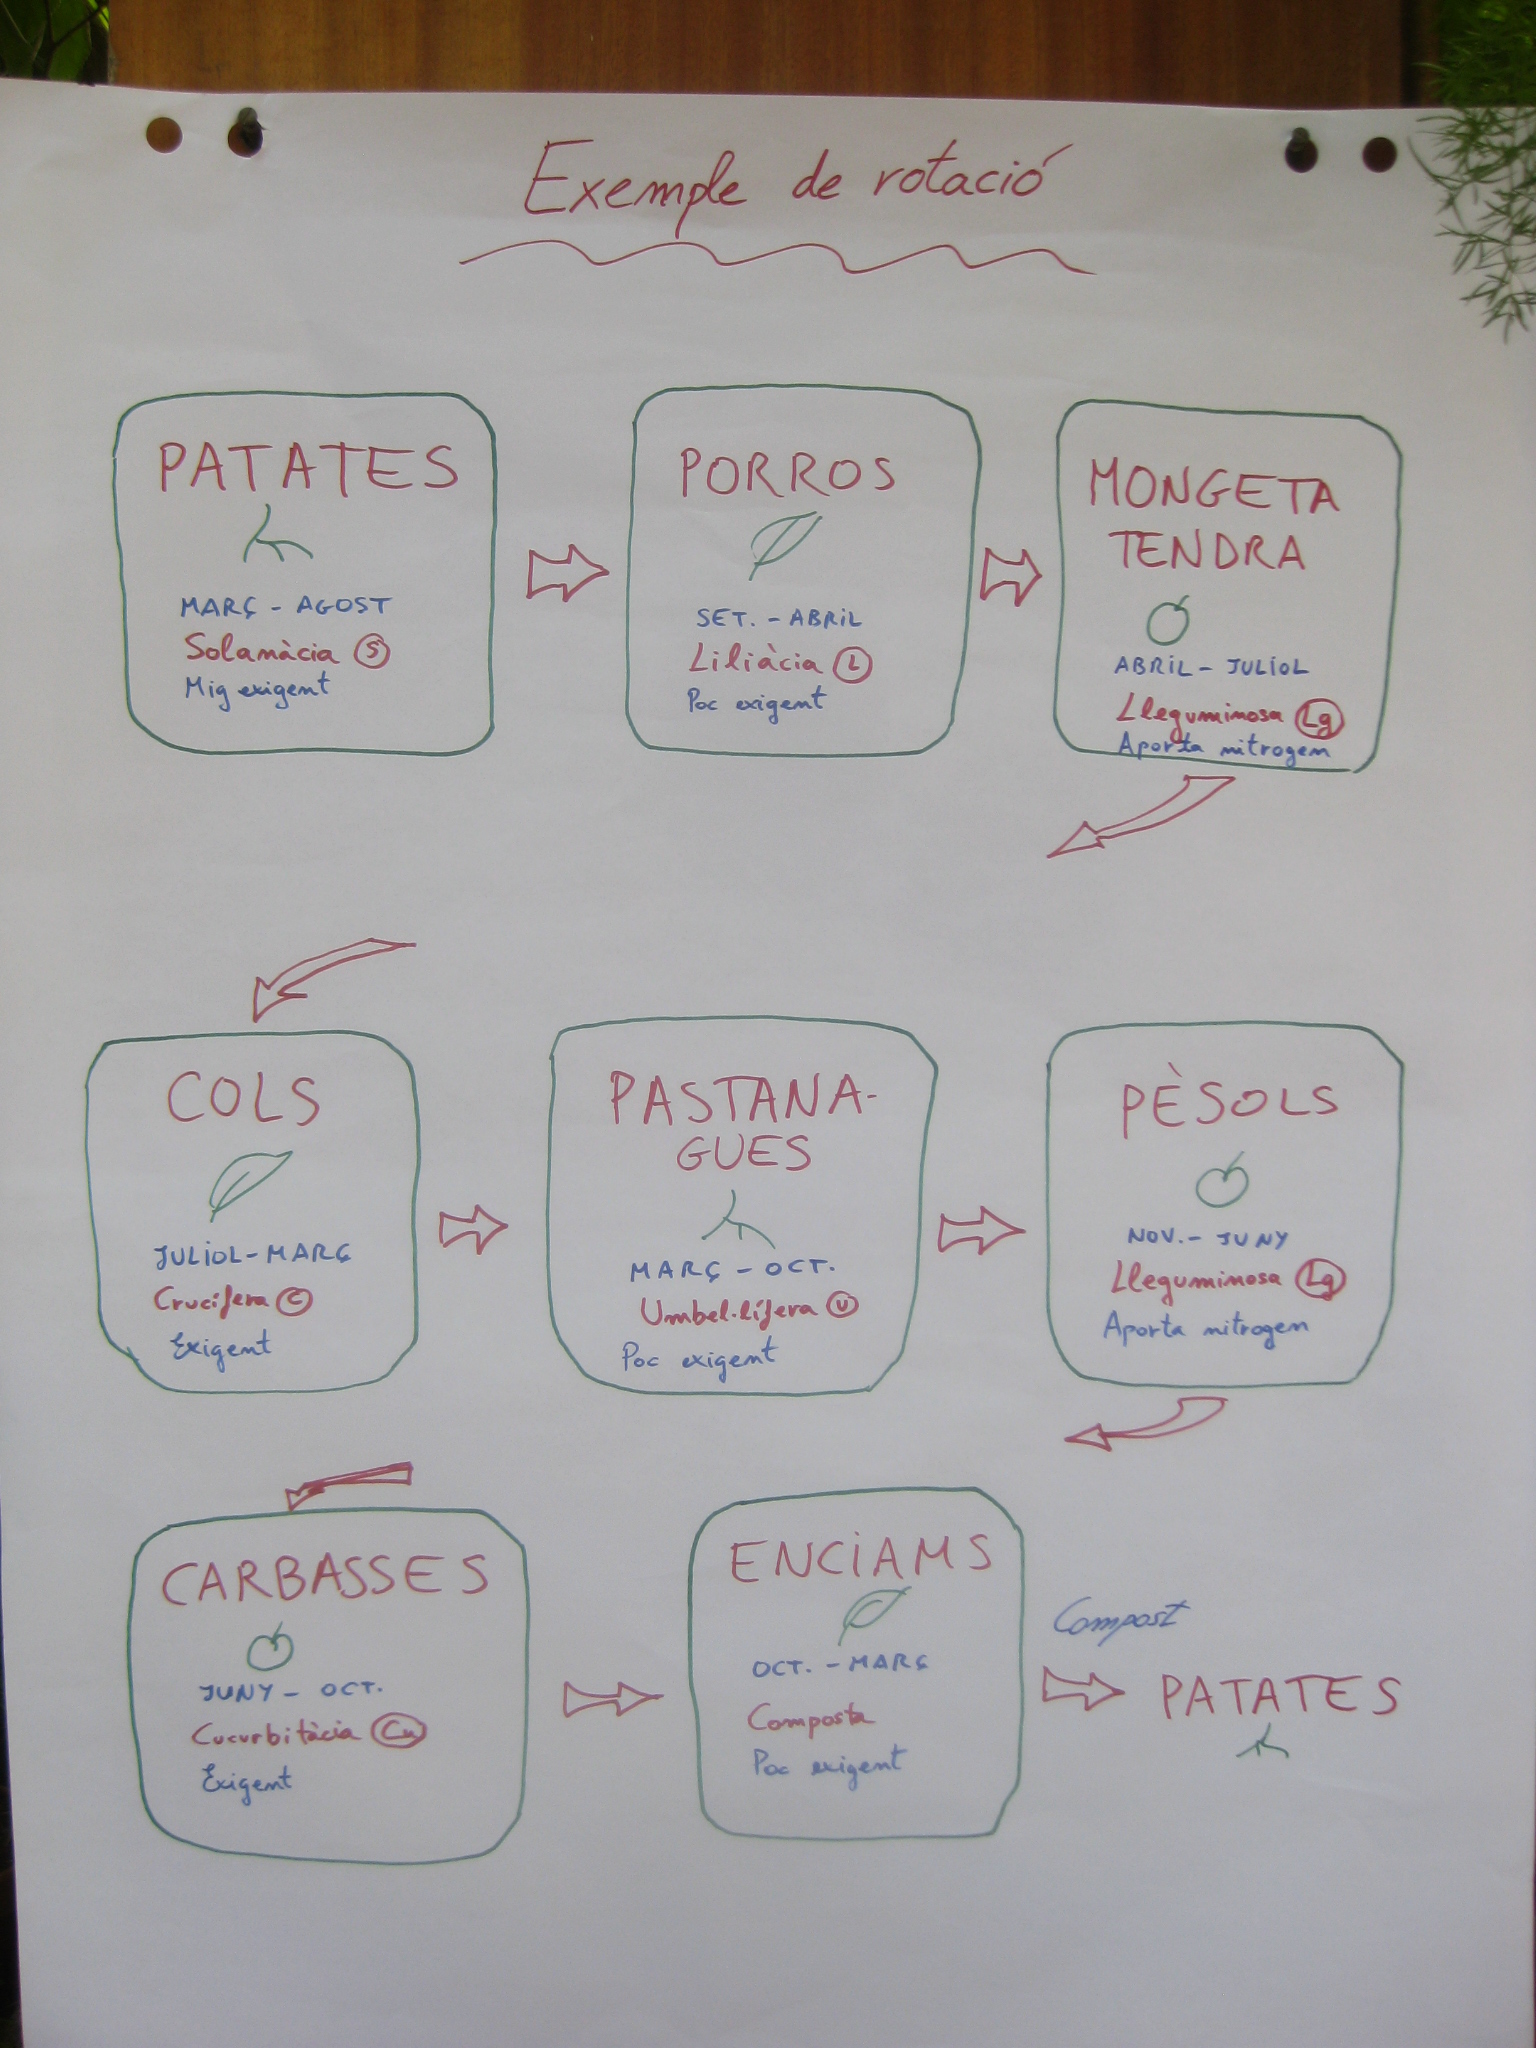 Exemple de rotació
PATATES
MARÇ - AGOST
Solanàcia S
Mig exigent
PORROS
SET. - ABRIL
Liliàcia L
Poc exigent
MONGETA
TENDRA
ABRIL - JULIOL
Lleguminosa Lg
Aporta nitrogen
COLS
JULIOL - MARÇ
Crucífera C
Exigent
PASTANA-
GUES
MARÇ - OCT.
Umbel·lífera U
Poc exigent
PÈSOLS
NOV. - JUNY
Lleguminosa Lg
Aporta nitrogen
CARBASSES
JUNY - OCT.
Cucurbitàcia Cu
Exigent
ENCIAMS
OCT. - MARÇ
Composta
Poc exigent
Compost
PATATES